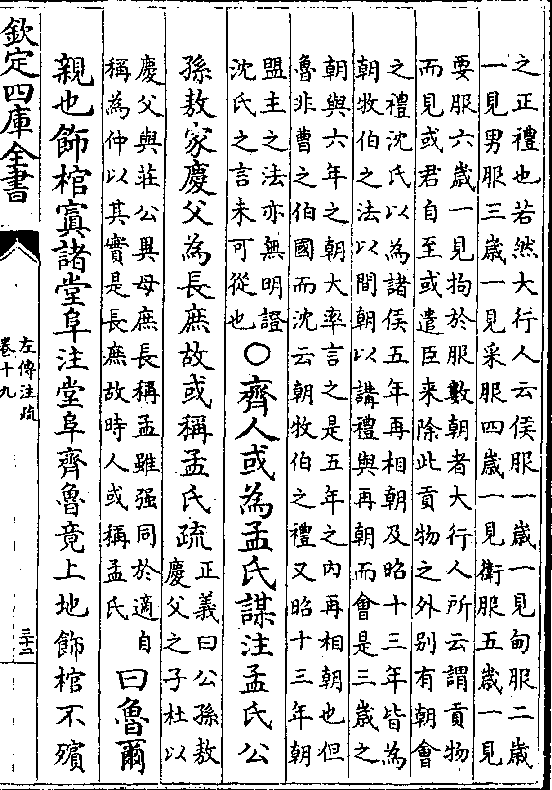 之正禮也若然大行人云侯服一歲一見甸服二歲
一見男服三歲一見采服四歲一見衛服五歲一見
要服六歲一見拘於服數朝者大行人所云謂貢物
而見或君自至或遣臣来除此貢物之外別有朝會
之禮沈氏以為諸侯五年再相朝及昭十三年皆為
朝牧伯之法以間朝以講禮與再朝而會是三歲之
朝與六年之朝大率言之是五年之内再相朝也但
魯非曹之伯國而沈云朝牧伯之禮又昭十三年朝
盟主之法亦無明證
沈氏之言未可從也
○齊人或為孟氏謀注孟氏公
孫敖家慶父為長庶故或稱孟氏疏
正義曰公孫敖
慶父之子杜以
慶父與莊公異母庶長稱孟雖强同於適自
稱為仲以其實是長庶故時人或稱孟氏
曰魯爾
親也飾棺寘諸堂阜注堂阜齊魯竟上地飾棺不殯
欽定四庫全書
左傳注疏
卷十九
三十二